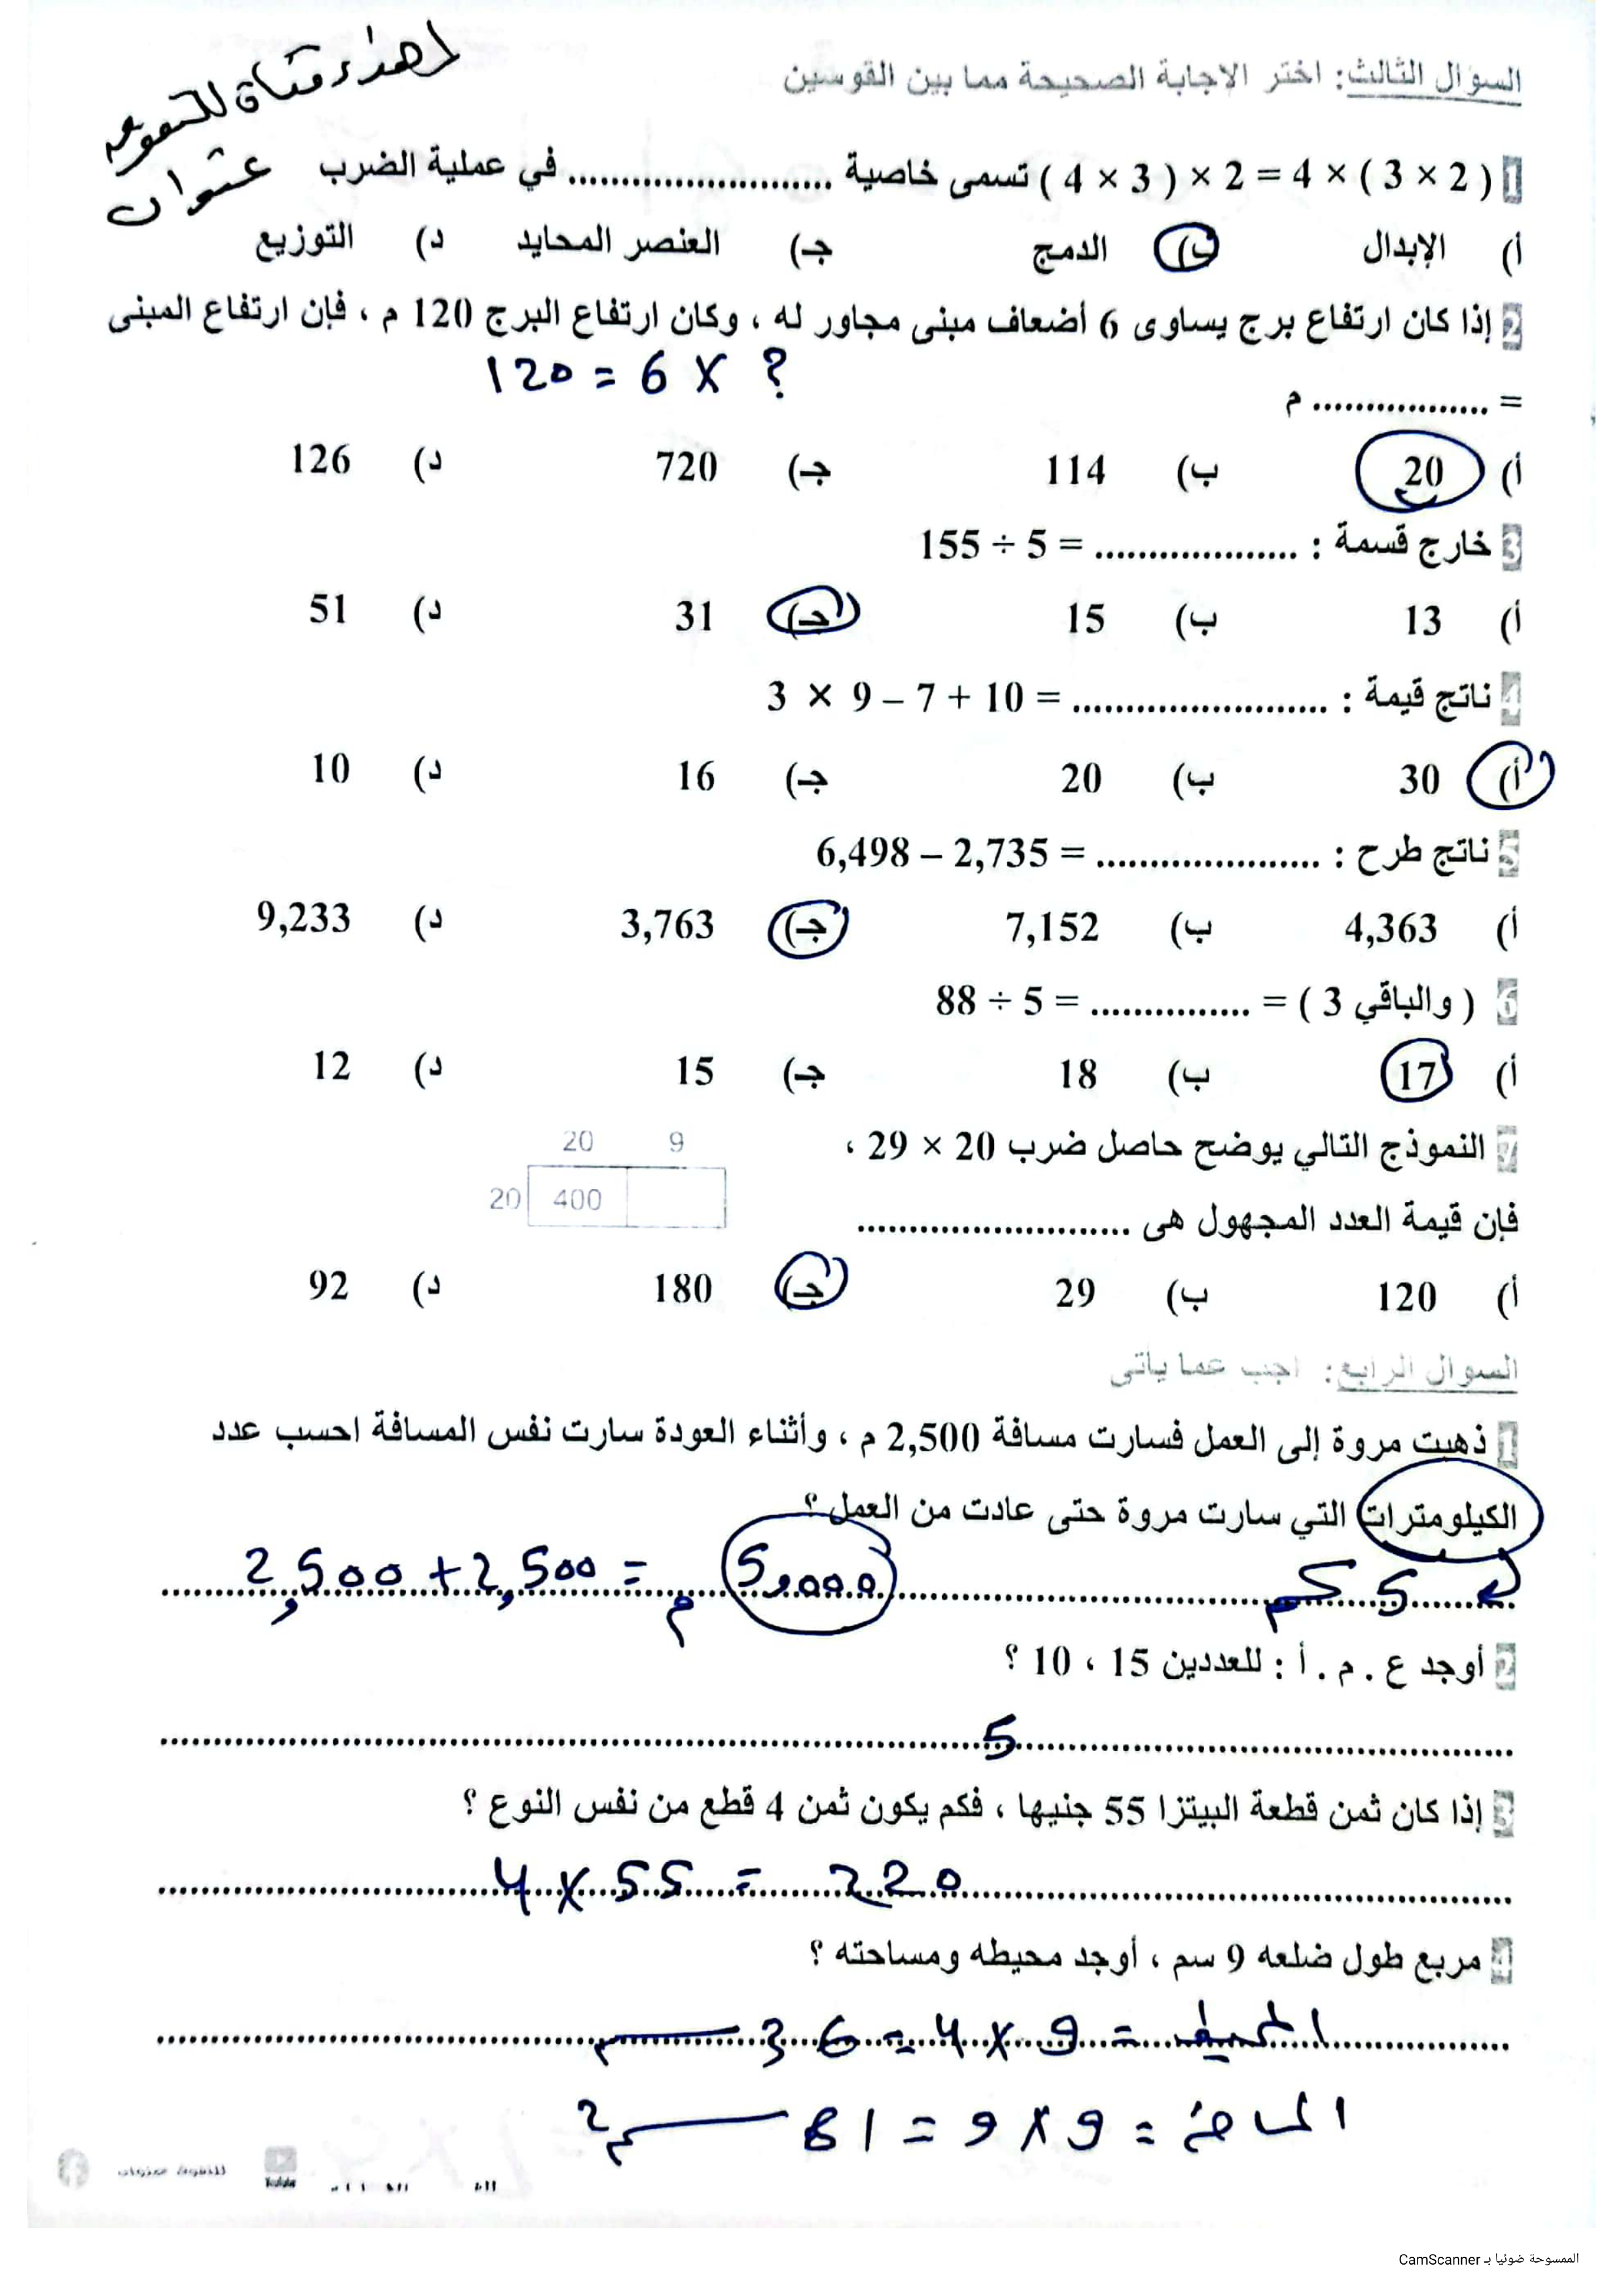 اهداء قناة للتفوق
عنوان
السؤال الثالث: اختر الاجابة الصحيحة مما بين القوسين
1 ( 2 × 3 ) × 4 = 2 × ( 3 × 4 ) تسمى خاصية ......................... في عملية الضرب
أ) الإبدال ب) الدمج جـ) العنصر المحايد د) التوزيع
2 إذا كان ارتفاع برج يساوى 6 أضعاف مبنى مجاور له ، وكان ارتفاع البرج 120 م ، فإن ارتفاع المبنى
120 = 6 × ?
= ................. م
أ) 20 ب) 114 جـ) 720 د) 126
3 خارج قسمة : ................... = 5 ÷ 155
أ) 13 ب) 15 جـ) 31 د) 51
4 ناتج قيمة : ........................ = 3 × 9 – 7 + 10
أ) 30 ب) 20 جـ) 16 د) 10
5 ناتج طرح : ..................... = 6,498 – 2,735
أ) 4,363 ب) 7,152 جـ) 3,763 د) 9,233
6 ( والباقي 3 ) = ............... = 88 ÷ 5
أ) 17 ب) 18 جـ) 15 د) 12
7 النموذج التالي يوضح حاصل ضرب 20 × 29 ،
20 9
20 400
فإن قيمة العدد المجهول هى ..........................
أ) 120 ب) 29 جـ) 180 د) 92
السوال الرابع: اجب عما ياتى
1 ذهبت مروة إلى العمل فسارت مسافة 2,500 م ، وأثناء العودة سارت نفس المسافة احسب عدد
الكيلومترات التي سارت مروة حتى عادت من العمل ؟
2,500 + 2,500 = 5,000 م
5 كم
2 أوجد ع . م . أ : للعددين 15 ، 10 ؟
5
3 إذا كان ثمن قطعة البيتزا 55 جنيها ، فكم يكون ثمن 4 قطع من نفس النوع ؟
4 × 55 = 220
4 مربع طول ضلعه 9 سم ، أوجد محيطه ومساحته ؟
المحيط = 9 × 4 = 36 سم
المساحة = 9 × 9 = 81 سم2
الممسوحة ضوئيا بـ CamScanner